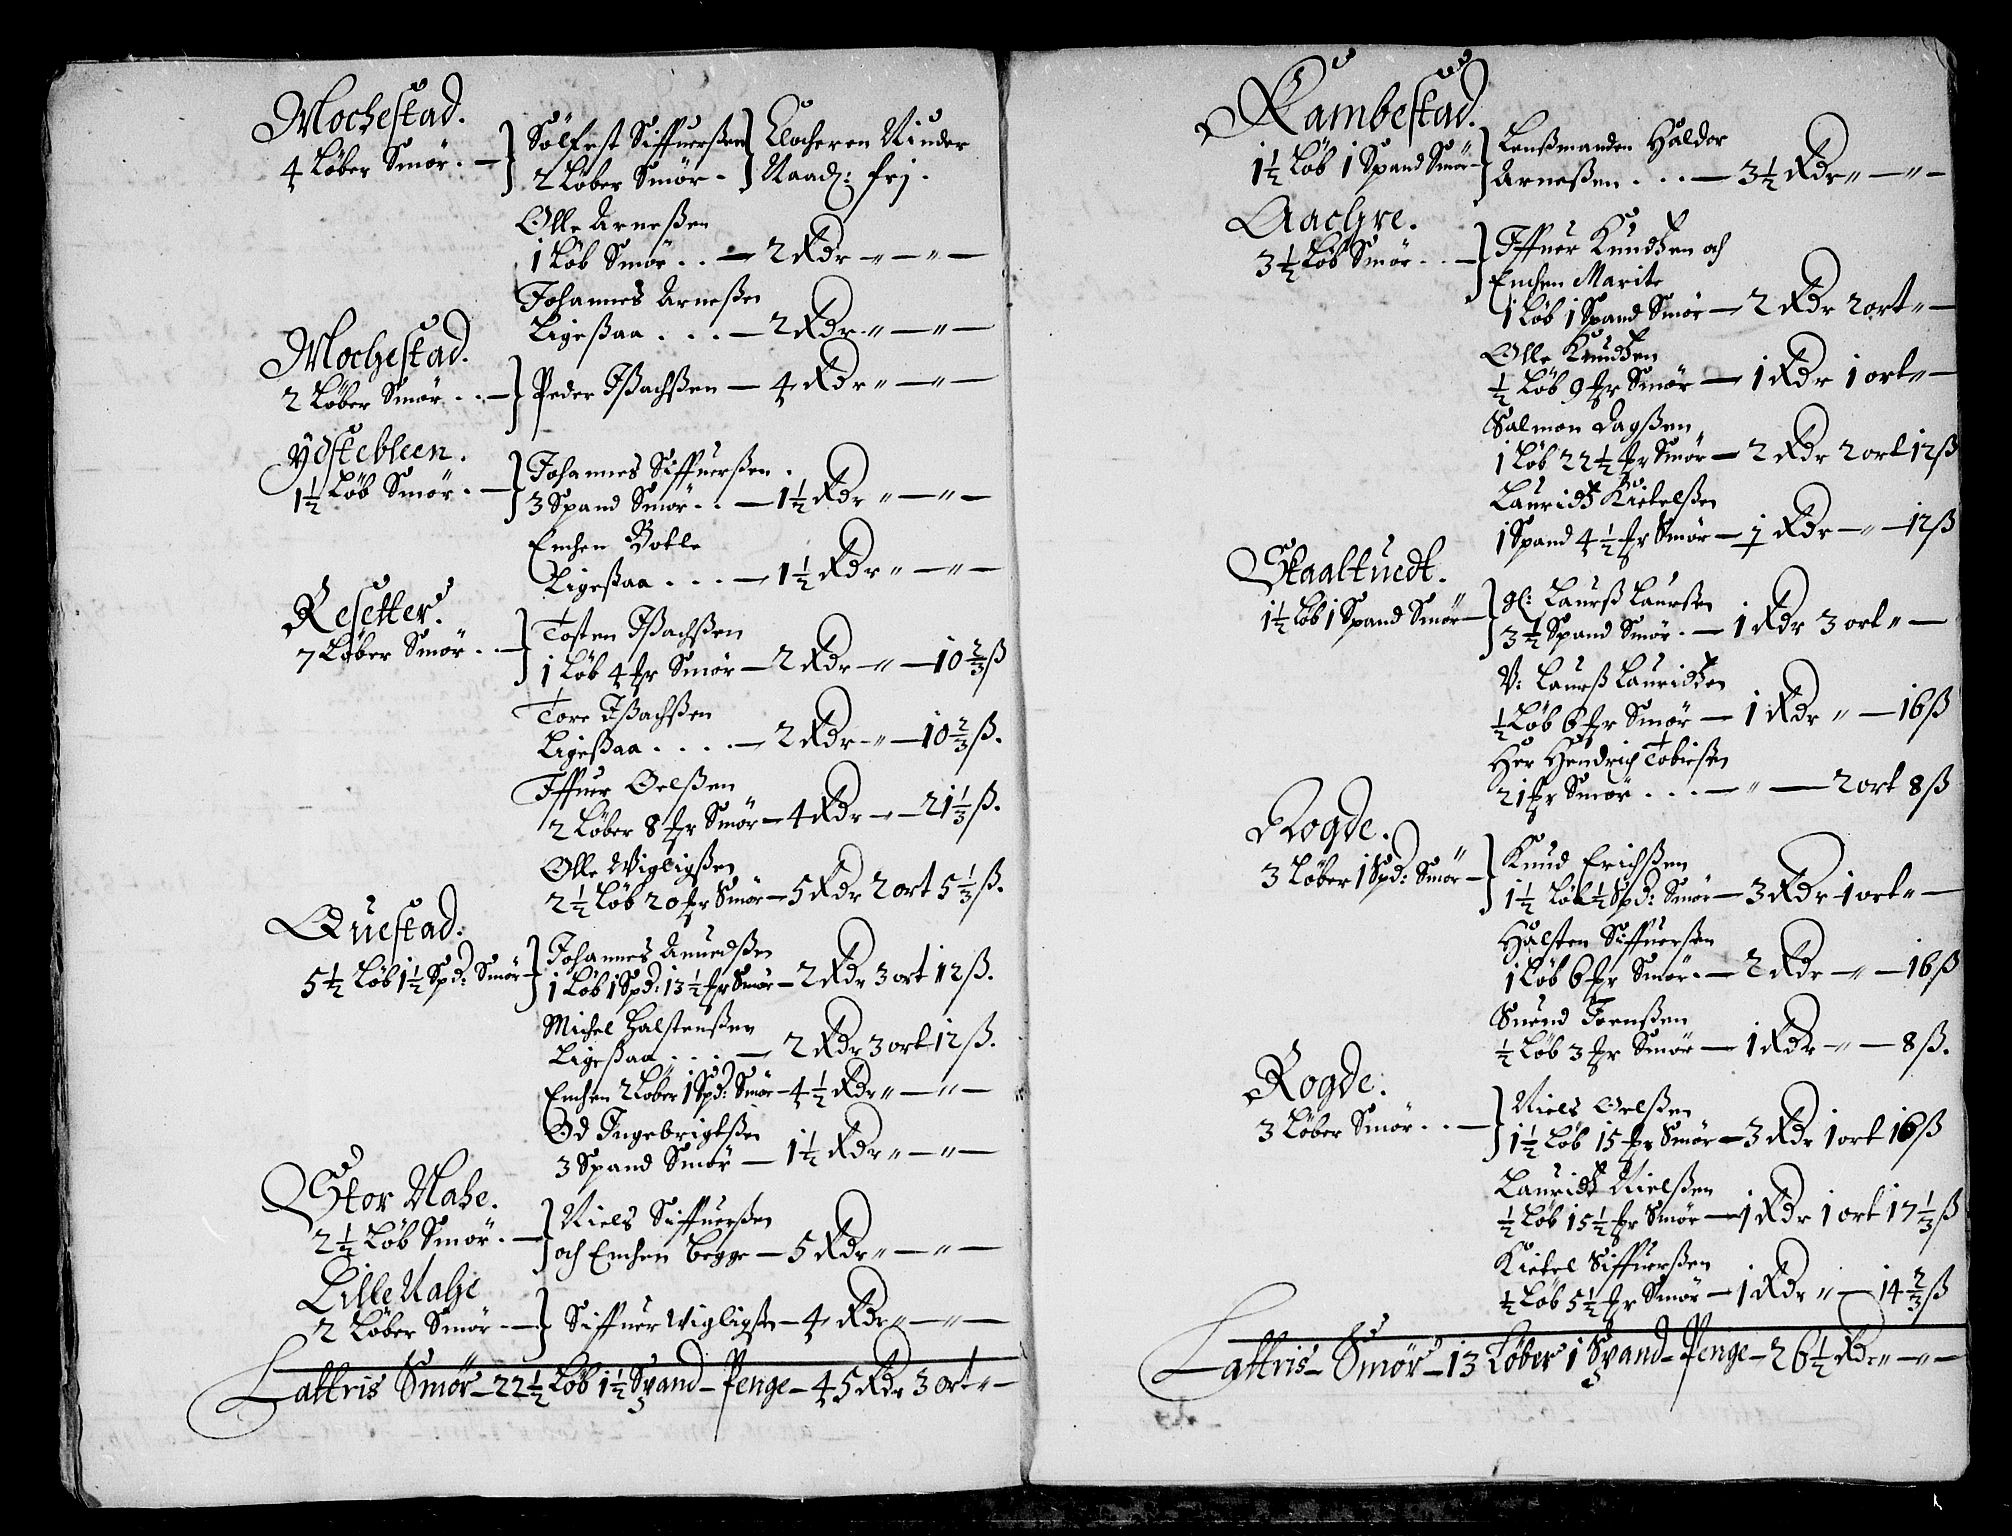 Mochestad.
4 Løber Smør. — Sølfest Siffuerßen Klocheren Vinder
2 Løber Smør. Naad: frj.
Olle Arneßen
1 Løb Smør . . — 2 Rdr „ — „ —
Johannes Arneßen
Ligeßaa . . . — 2 Rdr „ — „ —
Mochestad.
2 Løber Smør . . — Peder Ißachßen — 4 Rdr „ — „ —
Ydstebleen.
1½ Løb Smør. — Johannes Siffuerßen.
3 Spand Smør . . — 1½ Rdr „ — „ —
Enchen Botle
Ligeßaa . . . — 1½ Rdr „ — „ —
Resetter.
7 Løber Smør . . — Tosten Ißachßen
1 Løb 4 pr Smør — 2 Rdr — „ — 10⅔ ß
Tore Ißachßen
Ligeßaa . . . . — 2 Rdr — „ — 10⅔ ß.
Iffuer Oelßen
2 Løber 8 pr Smør — 4 Rdr — „ — 21⅓ ß.
Olle Vigligßen
2½ Løb 20 pr Smør — 5 Rdr 2 ort 5⅓ ß.
Questad.
5½ Løb 1½ Spd: Smør — Johannes Amundßen
1 Løb 1 Spd: 13½ pr Smør — 2 Rdr 3 ort 12 ß.
Michel Halstenßen
Ligeßaa . . . — 2 Rdr 3 ort 12 ß.
Enchen 2 Løber 1 Spd: Smør — 4½ Rdr „ — „ —
Od Ingebrigtßen
3 Spand Smør — 1½ Rdr „ — „ —
Stor Nahe.
2½ Løb Smør. — Niels Siffuerßen
och Enchen begge — 5 Rdr „ — „ —
Lille Nahe
2 Løber Smør — Siffuer Vigligßen — 4 Rdr „ — „ —
Lattris Smør — 22½ Løb 1½ Spand — Penge — 45 Rdr 3 ort „ —
Rambestad.
1½ Løb 1 Spand Smør — Lenßmanden Haldor
Arneßen . . . — 3½ Rdr „ — „ —
Aachre.
3½ Løb Smør . . — Iffuer Knudßen och
Enchen Marite
1 Løb 1 Spand Smør — 2 Rdr 2 ort „ —
Olle Knudßen
½ Løb 9 pr Smør — 1 Rdr 1 ort „ —
Salmon Dagßen
1 Løb 22½ pr Smør — 2 Rdr 2 ort 12 ß
Lauridz Kietelßen
1 Spand 4½ pr Smør — ½ Rdr — „ — 12 ß
Skaaltuedt.
1½ Løb 1 Spand Smør — gl: Laurß Laurßen
3½ Spand Smør . — 1 Rdr 3 ort „ —
V: Laurß Lauridzen
½ Løb 6 pr Smør — 1 Rdr „ — 16 ß
Her Hendrich Tobießen
21 pr Smør . . . — „ — 2 ort 8 ß
Rogde.
3 Løber 1 Spd: Smør — Knud Erichßen
1½ Løb ½ Spd: Smør — 3 Rdr 1 ort „ —
Halsten Siffuerßen
1 Løb 6 pr Smør. — 2 Rdr — „ — 16 ß
Suend Joenßen
½ Løb 3 pr Smør — 1 Rdr — „ — 8 ß.
Rogde.
3 Løber Smør . . — Niels Oelßen
1½ Løb 15 pr Smør — 3 Rdr 1 ort 16 ß
Lauridz Nielßen
½ Løb 15½ pr Smør — 1 Rdr 1 ort 17⅓ ß
Kietel Siffuerßen
½ Løb 5½ pr Smør — 1 Rdr „ — 14⅔ ß
Lattris — Smør — 13 Løber 1 Spand — Penge — 26½ Rdr „ — „ —